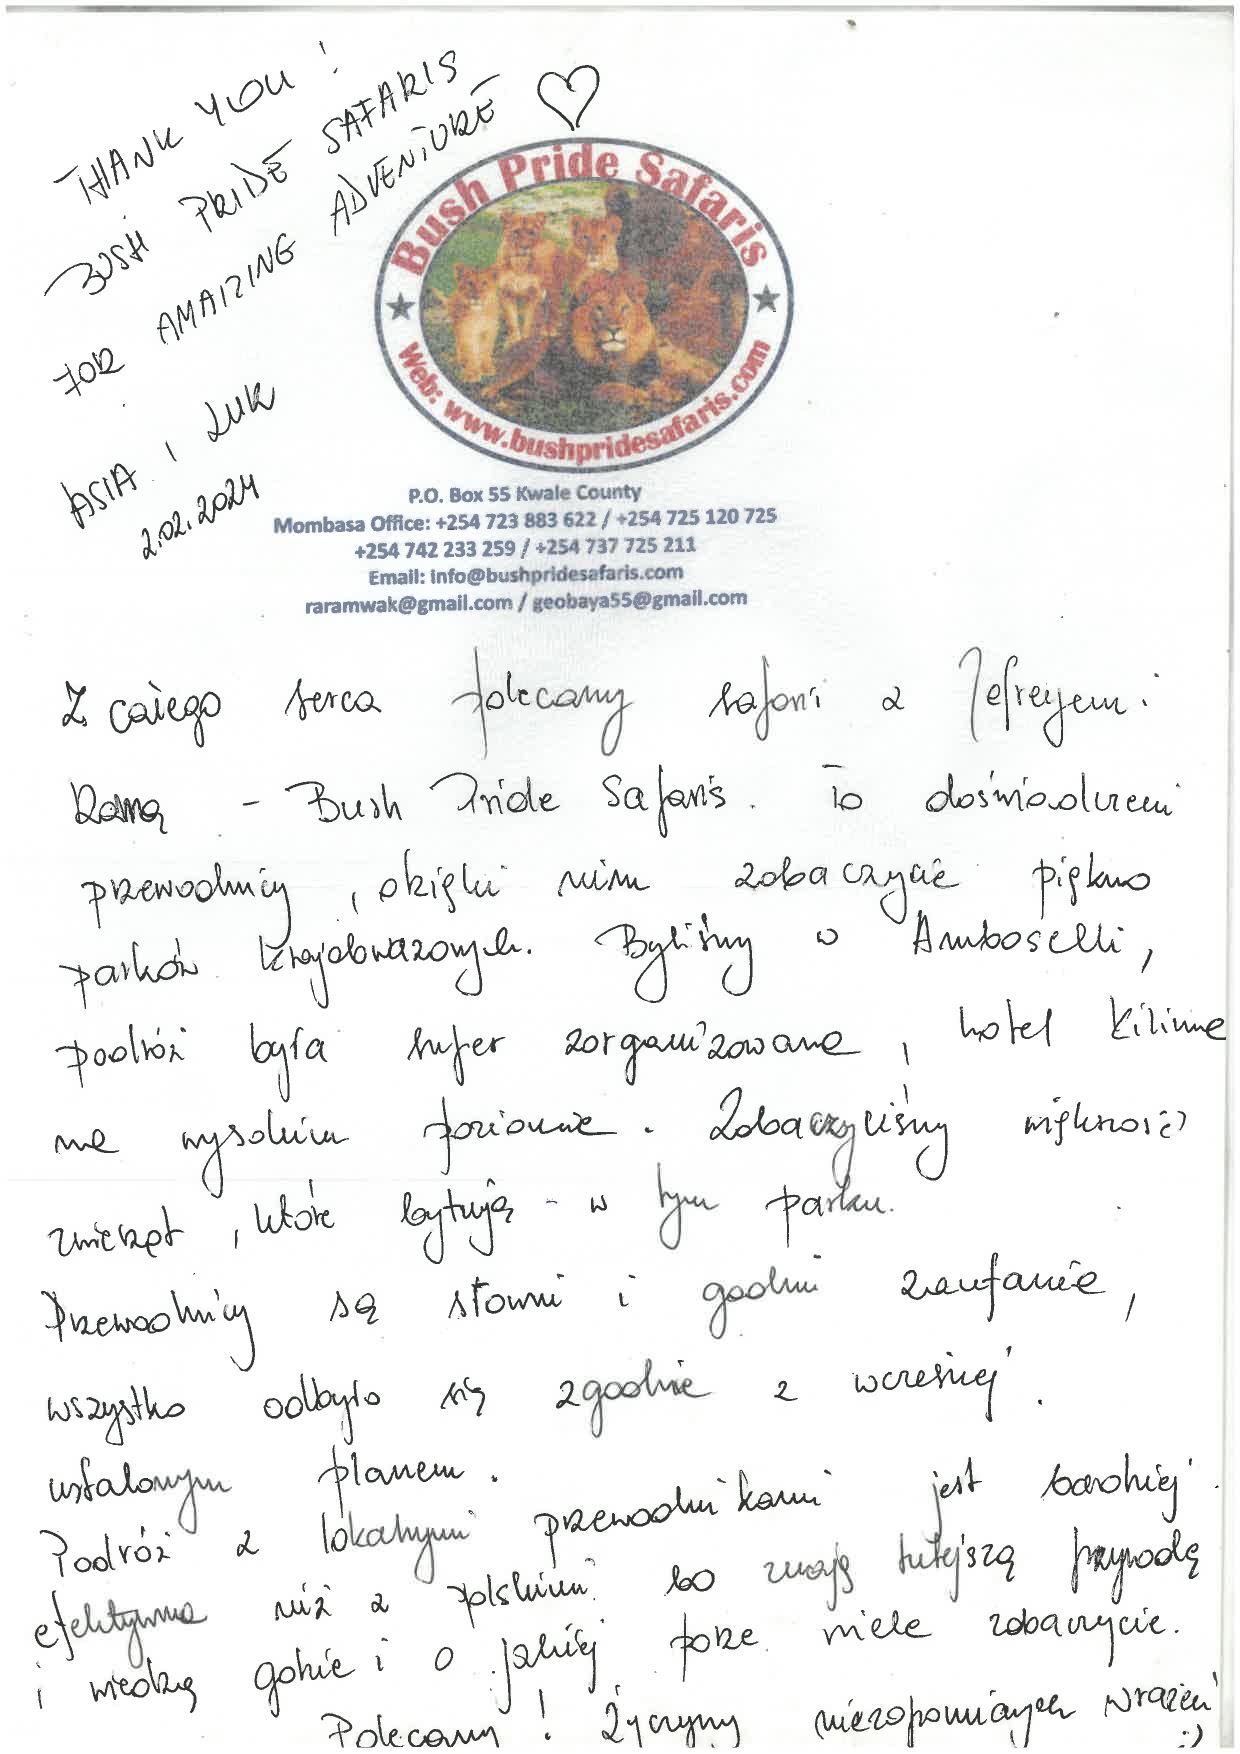 THANK YOU!
BUSH PRIDE SAFARIS
FOR AMAIZING ADVENTURE ♡
ASIA i ŁUK
2.02.2024
Bush Pride Safaris
Web: www.bushpridesafaris.com
P.O. Box 55 Kwale County
Mombasa Office: +254 723 883 622 / +254 725 120 725
+254 742 233 259 / +254 737 725 211
Email: info@bushpridesafaris.com
raramwak@gmail.com / geobaya55@gmail.com
Z całego serca polecamy safari z Jefreyem i
Ramą - Bush Pride Safaris. To doświadczeni
przewodnicy, dzięki nim zobaczycie piękno
parków krajobrazowych. Byliśmy w Amboselli,
podróż była super zorganizowana, hotel Kilima
na wysokim poziomie. Zobaczyliśmy większość
zwierząt, które bytują - w tym parku.
Przewodnicy są słowni i godni zaufania,
wszystko odbyło się zgodnie z wcześniej
ustalonym planem.
Podróż z lokalnymi przewodnikami jest bardziej
efektywna niż z polskimi bo znają tutejszą przyrodę
i wiedzą gdzie i o jakiej porze wiele zobaczycie.
Polecamy! Życzymy niezapomnianych wrażeń
:)